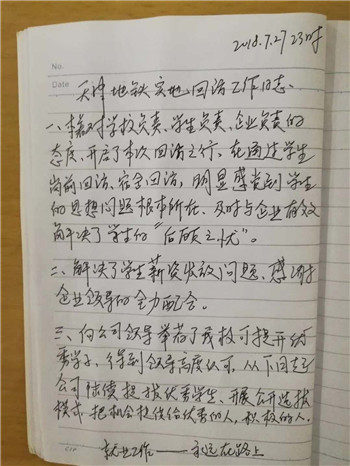 2018.7.27 23时
No.
Date
天津地铁实地回访工作日志
一、本着对学校负责、学生负责、企业负责的
态度、开启了本次回访之行、在通过学生
岗前回访、宿舍回访、明显感觉到学生
的思想问题根本所在、及时与企业有效
解决了学生的“后顾之忧”。
二、解决了学生薪资发放问题、感谢
企业领导的全力配合。
三、向公司领导举荐了我校可提升优
秀学子、得到领导高度认可，从下周起
公司陆续提拔优秀学生、开展公开选拔
模式、把机会提供给优秀的人，积极的人。
就业工作——永远在路上